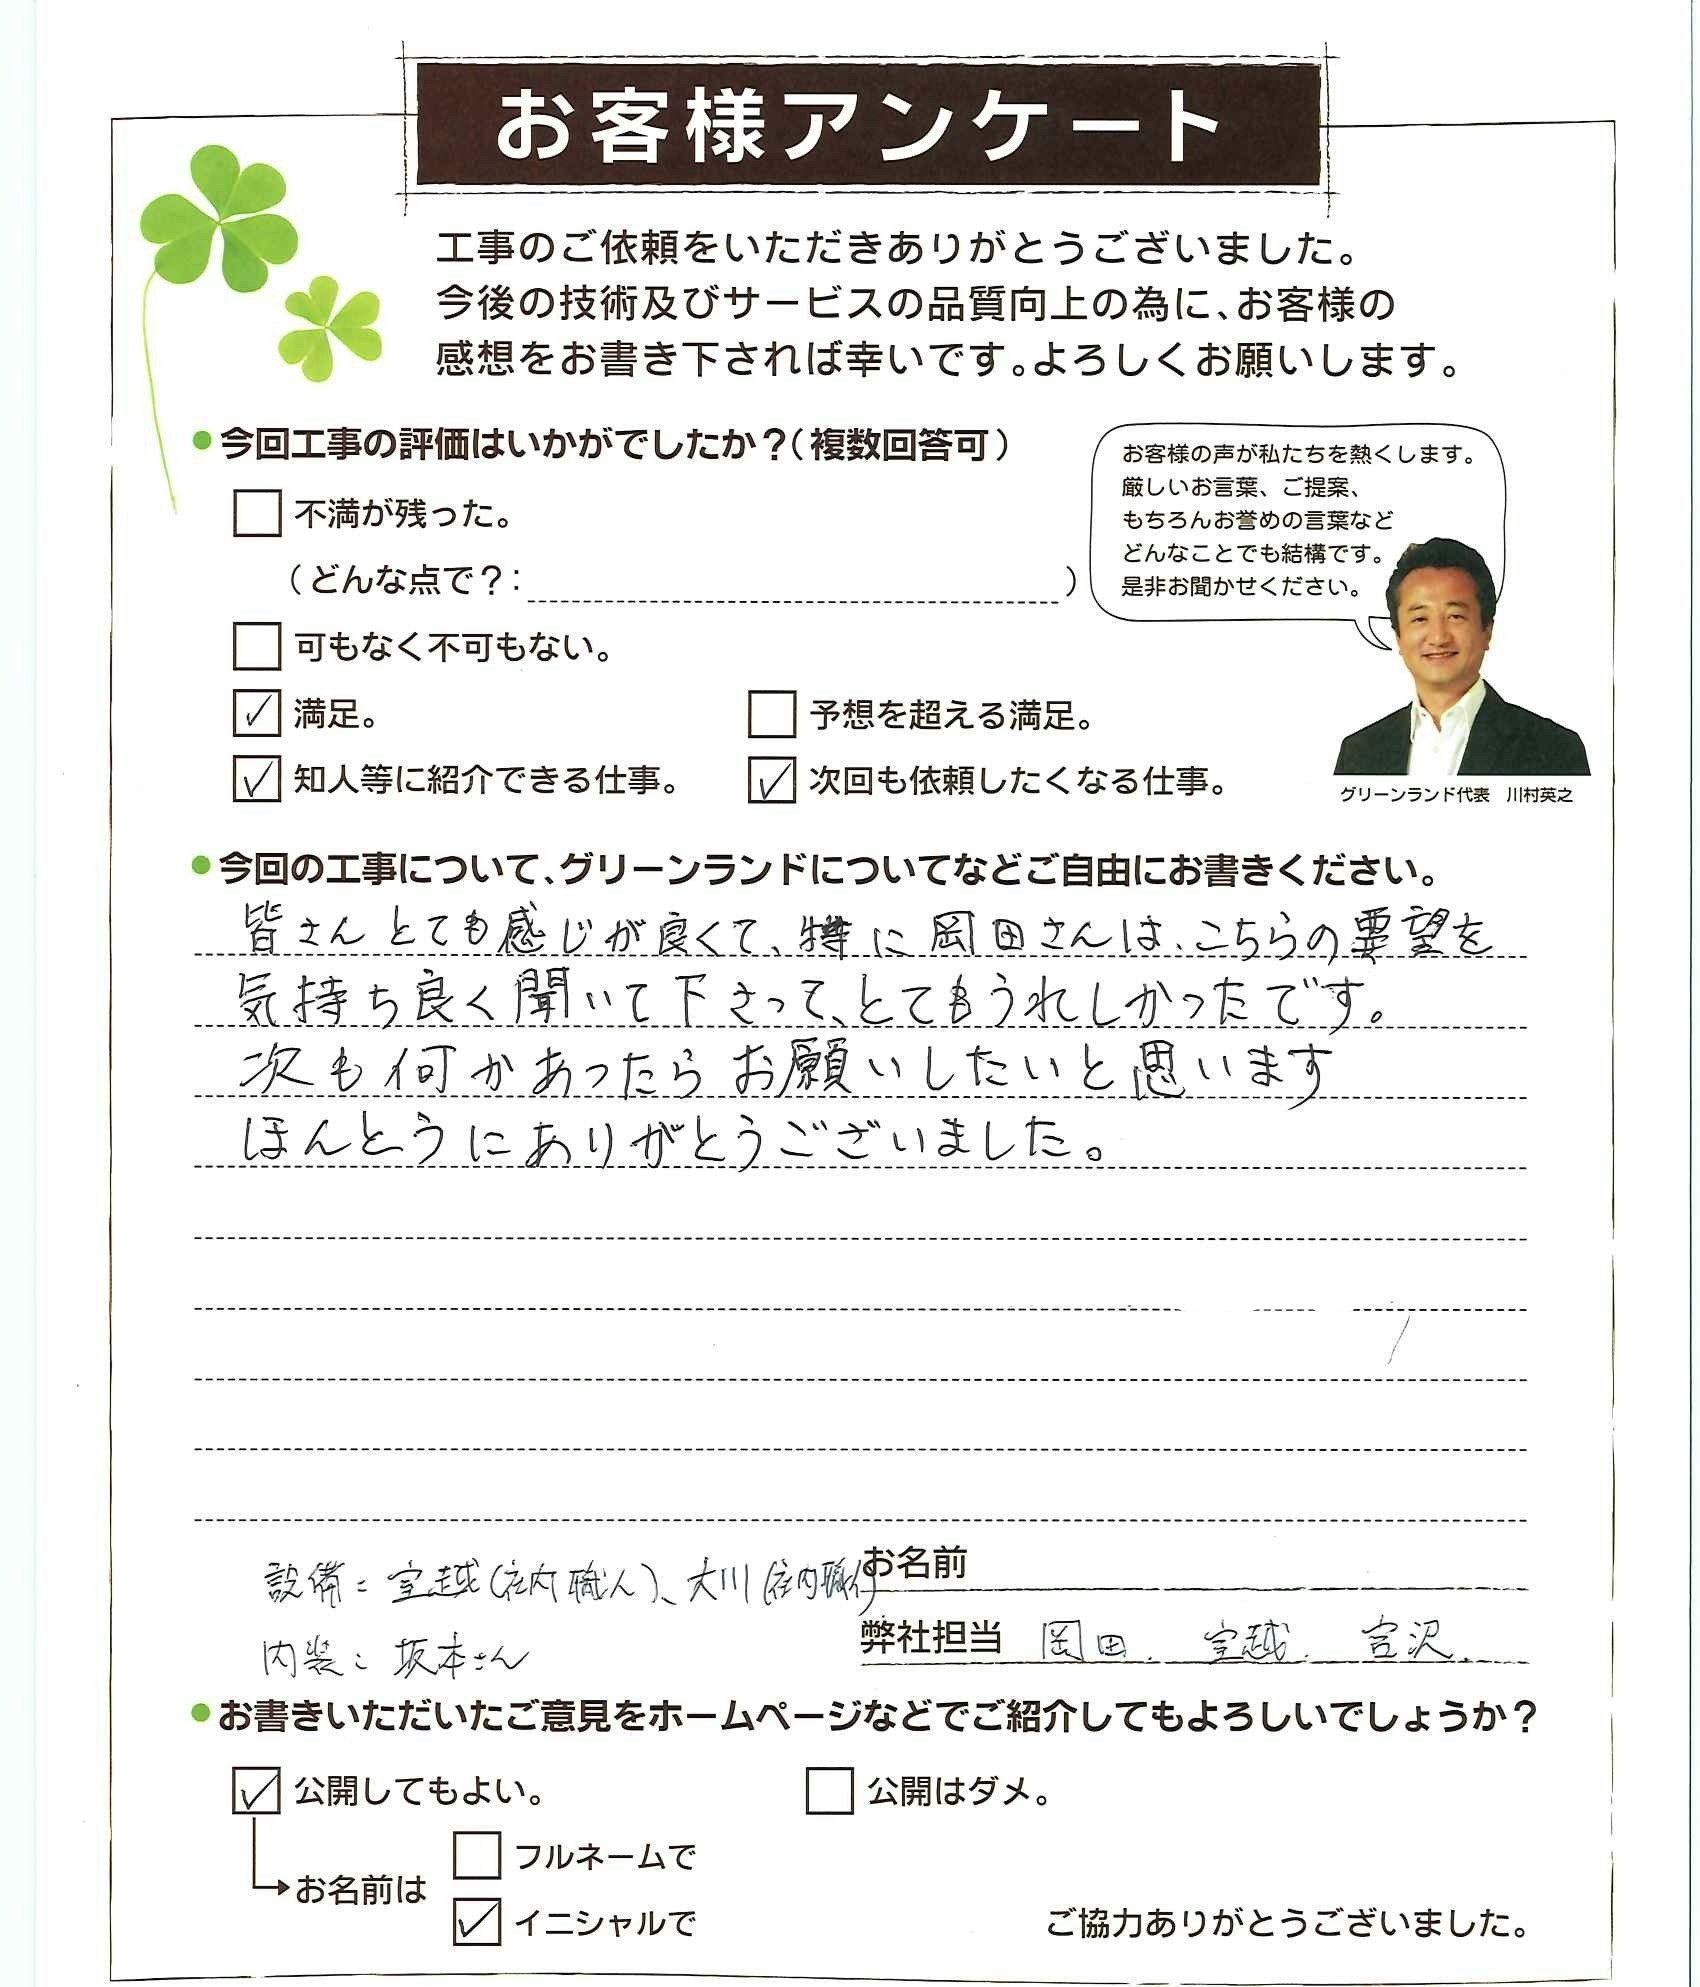 お客様アンケート
工事のご依頼をいただきありがとうございました。
今後の技術及びサービスの品質向上の為に、お客様の
感想をお書き下されば幸いです。よろしくお願いします。
●今回工事の評価はいかがでしたか？（複数回答可）
お客様の声が私たちを熱くします。
厳しいお言葉、ご提案、
もちろんお誉めの言葉など
どんなことでも結構です。
是非お聞かせください。
不満が残った。
（どんな点で？：　）
可もなく不可もない。
満足。
予想を超える満足。
知人等に紹介できる仕事。
次回も依頼したくなる仕事。
グリーンランド代表　川村英之
●今回の工事について、グリーンランドについてなどご自由にお書きください。
皆さんとても感じが良くて、特に岡田さんは、こちらの要望を
気持ち良く聞いて下さって、とてもうれしかったです。
次も何かあったらお願いしたいと思います
ほんとうにありがとうございました。
お名前
設備：室越(社内職人)、大川(社内職人)
弊社担当 岡田. 室越. 宮沢.
内装：坂本さん
●お書きいただいたご意見をホームページなどでご紹介してもよろしいでしょうか？
公開してもよい。
公開はダメ。
フルネームで
お名前は
イニシャルで
ご協力ありがとうございました。